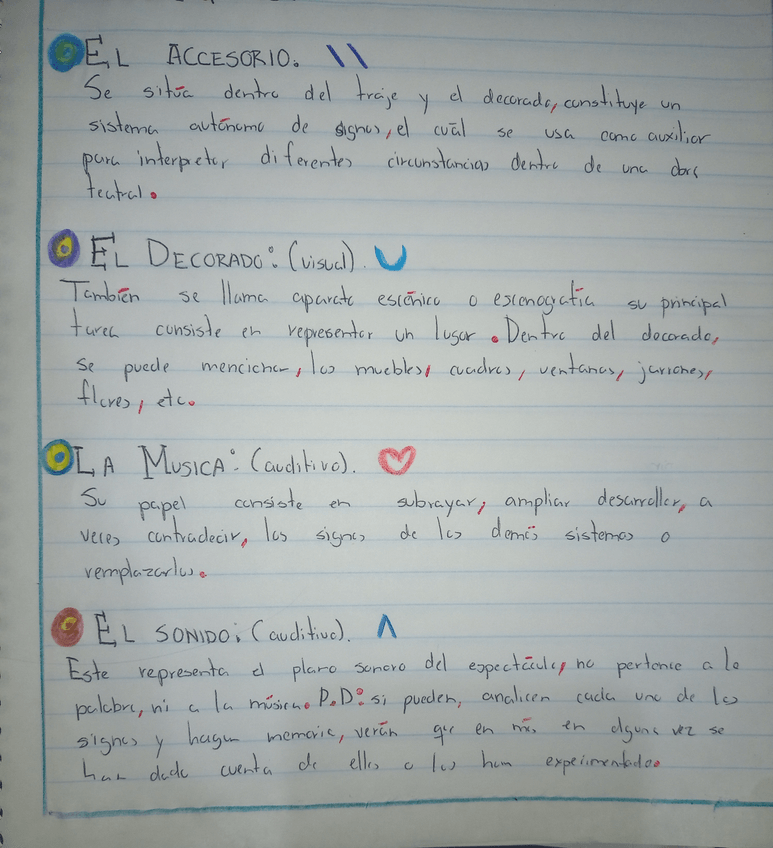 EL ACCESORIO.
Se sitúa dentro del traje y el decorado, constituye un
sistema autónomo de signos, el cuál se usa como auxiliar
para interpretar diferentes circunstancias dentro de una
teatral.
EL DECORADO: (visual).
También se llama aparato escénico o escenografía su principal
tarea consiste en representar un lugar. Dentro del decorado,
se puede mencionar, los muebles, cuadros, ventanas,
flores, etc.
LA MUSICA: (auditivo).
Su papel consiste en subrayar, ampliar desarrollar, a
veces contradecir, los signos de los demás sistemas o
remplazarlos.
EL SONIDO: (auditivo).
Este representa el plano sonoro del espectáculo, no pertence a la
palabra, ni a la música. P.D: si pueden, analicen cada uno de los
signos y hagan memoria, verán que en más en alguna vez se
han dado cuenta de ellos o los han experimentado.